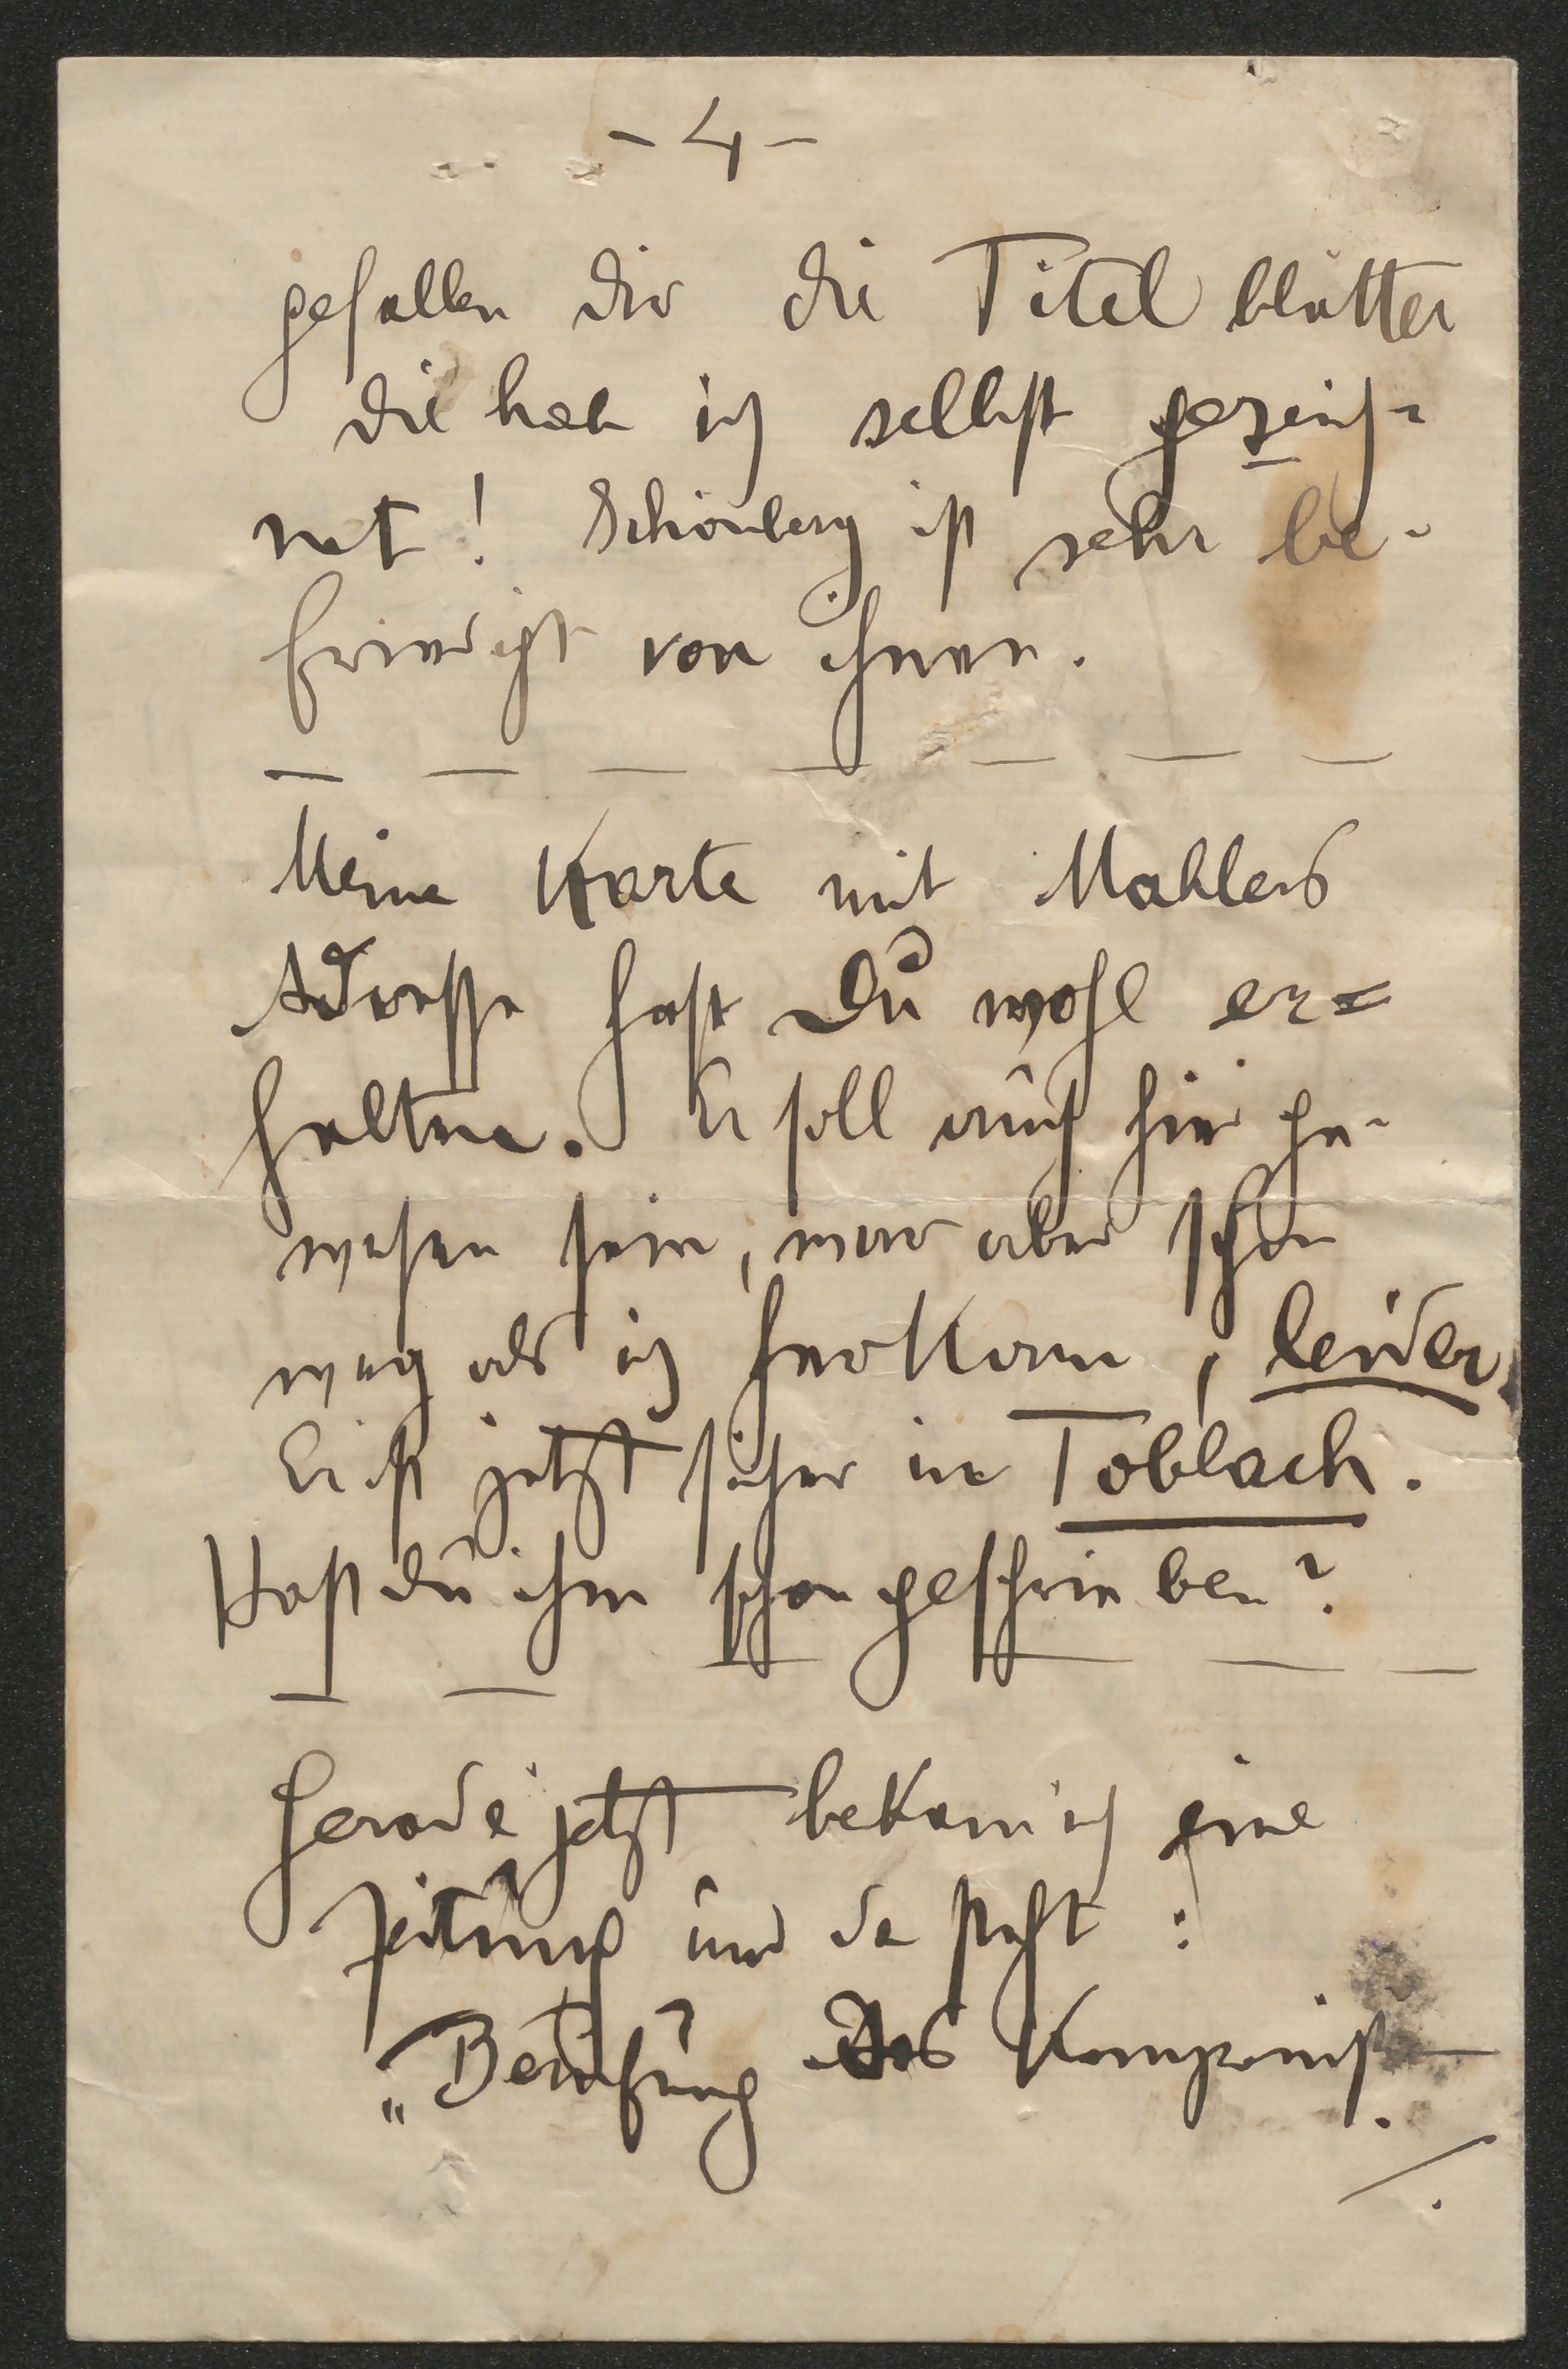 - 4 -
gefallen dir die Titelblätter
die hab ich selbst gezeich-
net! Schönberg ist sehr be-
friedigt von ihnen.
Meine Karte mit Mahlers
Adresse hast Du wohl er=
halten. Er soll auch hier ge-
wesen sein, war aber schon
weg als ich herkam, leider.
Er ist jetzt sicher in Toblach.
Hast du ihm schon geschrieben?
Gerade jetzt bekam ich eine
Zeitung und da steht:
„Berufung des Komponist